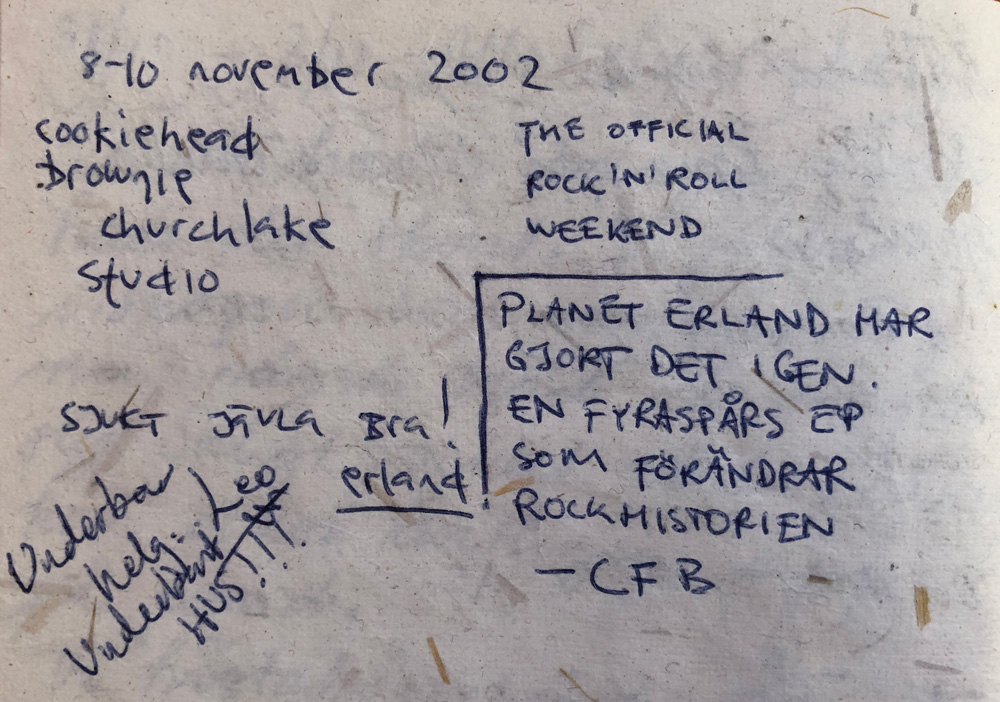 8-10 november 2002
cookiehead
brownie
churchlake
studio
THE OFFICIAL
ROCK'N'ROLL
WEEKEND
PLANET ERLAND HAR
GJORT DET IGEN.
EN FYRASPÅRS EP
SOM FÖRÄNDRAR
ROCKHISTORIEN
- CFB
SJUKT JÄVLA BRA!
erland
Underbar
helg. Leo
Underbart
HUS!!!